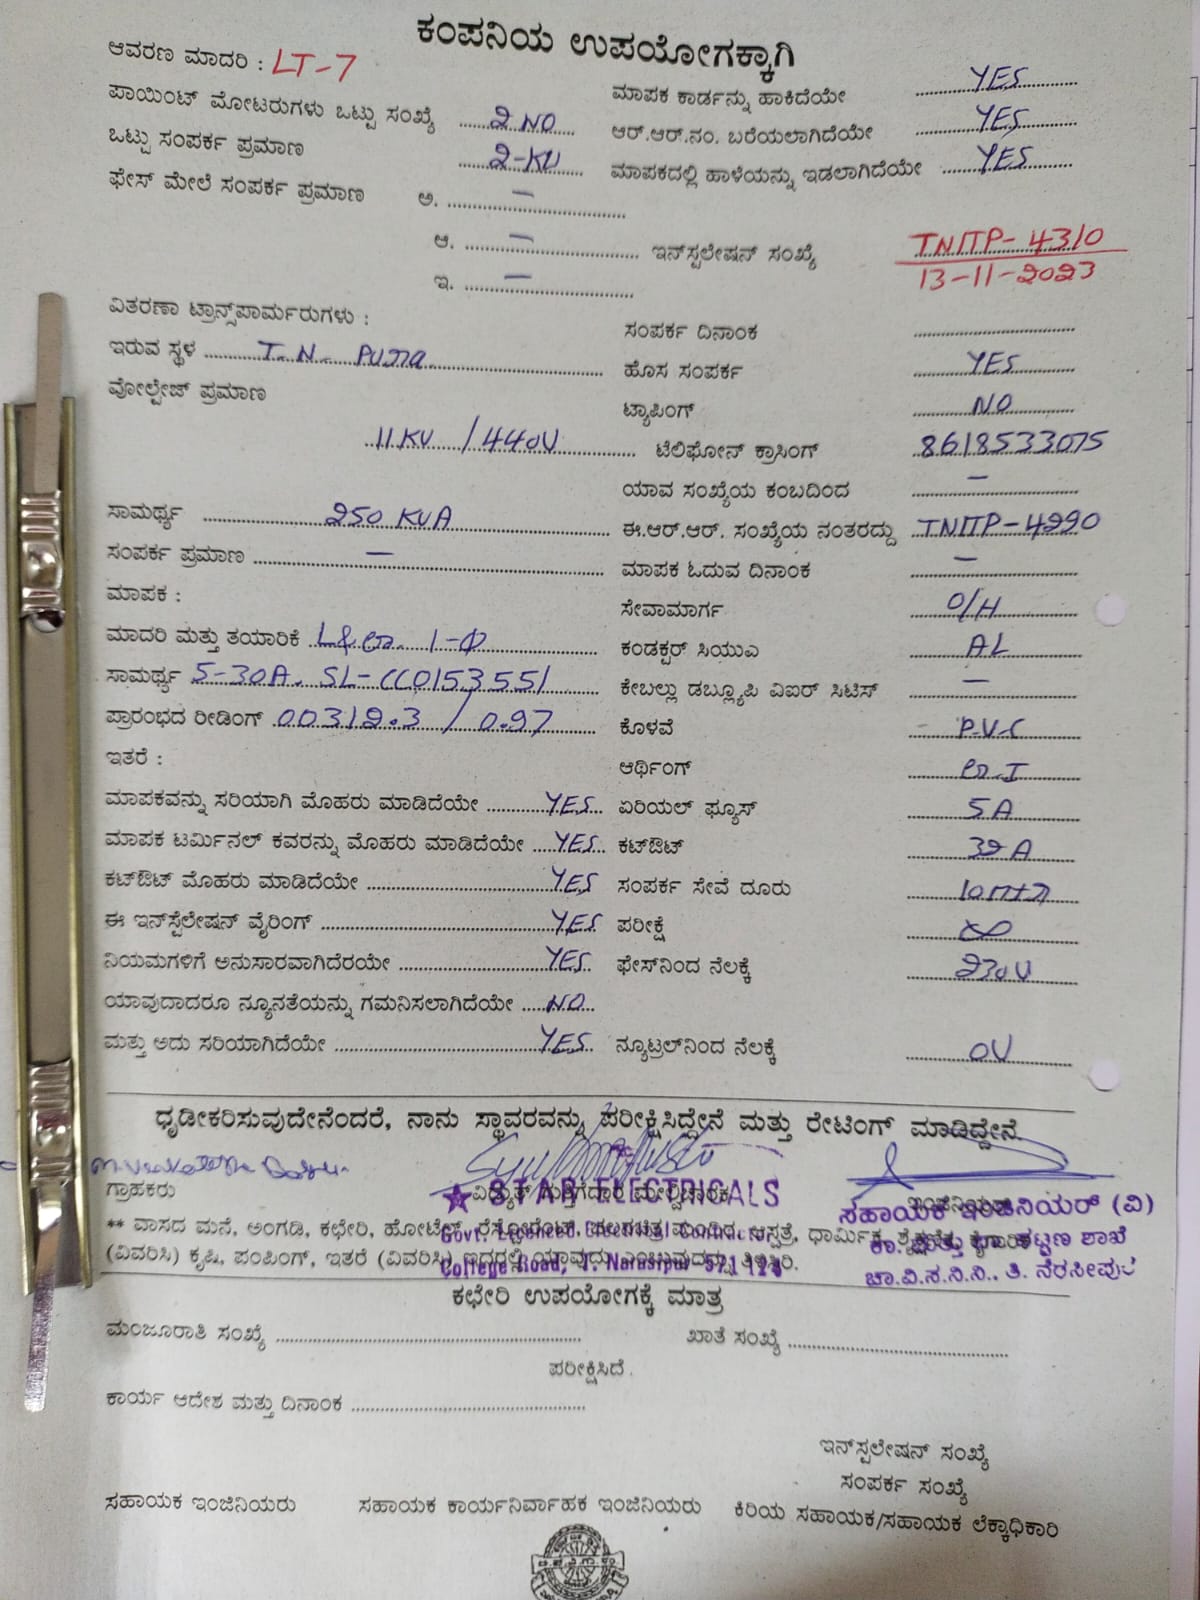 ಕಂಪನಿಯ ಉಪಯೋಗಕ್ಕಾಗಿ
ಆವರಣ ಮಾದರಿ : LT-7
ಮಾಪಕ ಕಾರ್ಡನ್ನು ಹಾಕಿದೆಯೇ YES
ಪಾಯಿಂಟ್ ಮೋಟರುಗಳು ಒಟ್ಟು ಸಂಖ್ಯೆ 2 NO
ಆರ್.ಆರ್.ನಂ. ಬರೆಯಲಾಗಿದೆಯೇ YES
ಒಟ್ಟು ಸಂಪರ್ಕ ಪ್ರಮಾಣ 2-KV
ಮಾಪಕದಲ್ಲಿ ಹಾಳೆಯನ್ನು ಇಡಲಾಗಿದೆಯೇ YES
ಫೇಸ್ ಮೇಲೆ ಸಂಪರ್ಕ ಪ್ರಮಾಣ ಅ. —
ಆ. —
ಇನ್‌ಸ್ಪಲೇಷನ್ ಸಂಖ್ಯೆ TNITP-4310
13-11-2023
ಇ. —
ವಿತರಣಾ ಟ್ರಾನ್ಸ್‌ಪಾರ್ಮರುಗಳು :
ಸಂಪರ್ಕ ದಿನಾಂಕ
ಇರುವ ಸ್ಥಳ T.N. Pura
ಹೊಸ ಸಂಪರ್ಕ YES
ವೋಲ್ಟೇಜ್ ಪ್ರಮಾಣ
ಟ್ಯಾಪಿಂಗ್ NO
11KV / 440V
ಟೆಲಿಫೋನ್ ಕ್ರಾಸಿಂಗ್ 8618533075
ಯಾವ ಸಂಖ್ಯೆಯ ಕಂಬದಿಂದ —
ಸಾಮರ್ಥ್ಯ 250 KVA
ಈ.ಆರ್.ಆರ್. ಸಂಖ್ಯೆಯ ನಂತರದ್ದು TNITP-4290
ಸಂಪರ್ಕ ಪ್ರಮಾಣ —
ಮಾಪಕ ಓದುವ ದಿನಾಂಕ —
ಮಾಪಕ :
ಸೇವಾಮಾರ್ಗ O/H
ಮಾದರಿ ಮತ್ತು ತಯಾರಿಕೆ 1-Φ
ಕಂಡಕ್ಟರ್ ಸಿಯುಎ AL
ಸಾಮರ್ಥ್ಯ 5-30A. SL-CC0153551
ಕೇಬಲ್ಲು ಡಬ್ಲ್ಯೂಪಿ ವಿಐರ್ ಸಿಟಿಸ್ —
ಪ್ರಾರಂಭದ ರೀಡಿಂಗ್ 00312.3 / 0.27
ಕೊಳವೆ P.V.C
ಇತರೆ :
ಆರ್ಥಿಂಗ್
ಮಾಪಕವನ್ನು ಸರಿಯಾಗಿ ಮೊಹರು ಮಾಡಿದೆಯೇ YES
ಏರಿಯಲ್ ಫ್ಯೂಸ್ 5A
ಮಾಪಕ ಟರ್ಮಿನಲ್ ಕವರನ್ನು ಮೊಹರು ಮಾಡಿದೆಯೇ YES
ಕಟ್‌ಔಟ್ 32A
ಕಟ್‌ಔಟ್ ಮೊಹರು ಮಾಡಿದೆಯೇ YES
ಸಂಪರ್ಕ ಸೇವೆ ದೂರು
ಈ ಇನ್‌ಸ್ಪೆಲೇಷನ್ ವೈರಿಂಗ್ YES
ಪರೀಕ್ಷೆ ∞
ನಿಯಮಗಳಿಗೆ ಅನುಸಾರವಾಗಿದೆರಯೇ YES
ಫೇಸ್‌ನಿಂದ ನೆಲಕ್ಕೆ 230V
ಯಾವುದಾದರೂ ನ್ಯೂನತೆಯನ್ನು ಗಮನಿಸಲಾಗಿದೆಯೇ NO
ಮತ್ತು ಅದು ಸರಿಯಾಗಿದೆಯೇ YES
ನ್ಯೂಟ್ರಲ್‌ನಿಂದ ನೆಲಕ್ಕೆ 0V
ಧೃಡೀಕರಿಸುವುದೇನೆಂದರೆ, ನಾನು ಸ್ಥಾವರವನ್ನು ಪರೀಕ್ಷಿಸಿದ್ದೇನೆ ಮತ್ತು ರೇಟಿಂಗ್ ಮಾಡಿದ್ದೇನೆ
ಗ್ರಾಹಕರು
ವಿದ್ಯುತ್ ಗುತ್ತಿಗೆದಾರ ಮೇಲ್ವಿಚಾರಕ
STAR ELECTRICALS
Govt. Licenced Electrical Contractor
College Road, T. Narasipur-571 124
ಸಹಾಯಕ ಇಂಜಿನಿಯರ್ (ವಿ)
ಕಾ. ಮತ್ತು ಪಟ್ಟಣ ಶಾಖೆ
ಚಾ.ವಿ.ಸ.ನಿ.ನಿ., ತಿ. ನರಸೀಪುರ
** ವಾಸದ ಮನೆ, ಅಂಗಡಿ, ಕಛೇರಿ, ಹೋಟೆಲ್, ರೆಸ್ಟೋರೆಂಟ್, ಚಲನಚಿತ್ರ ಮಂದಿರ, ಆಸ್ಪತ್ರೆ, ಧಾರ್ಮಿಕ,
(ವಿವರಿಸಿ) ಕೃಷಿ, ಪಂಪಿಂಗ್, ಇತರೆ (ವಿವರಿಸಿ) ಇದರಲ್ಲಿ ಯಾವುದು ಎಂಬುವುದನ್ನು ತಿಳಿಸಿರಿ.
ಕಛೇರಿ ಉಪಯೋಗಕ್ಕೆ ಮಾತ್ರ
ಮಂಜೂರಾತಿ ಸಂಖ್ಯೆ
ಖಾತೆ ಸಂಖ್ಯೆ
ಪರೀಕ್ಷಿಸಿದೆ.
ಕಾರ್ಯ ಆದೇಶ ಮತ್ತು ದಿನಾಂಕ
ಇನ್‌ಸ್ಪಲೇಷನ್ ಸಂಖ್ಯೆ
ಸಂಪರ್ಕ ಸಂಖ್ಯೆ
ಸಹಾಯಕ ಇಂಜಿನಿಯರು
ಸಹಾಯಕ ಕಾರ್ಯನಿರ್ವಾಹಕ ಇಂಜಿನಿಯರು
ಕಿರಿಯ ಸಹಾಯಕ/ಸಹಾಯಕ ಲೆಕ್ಕಾಧಿಕಾರಿ